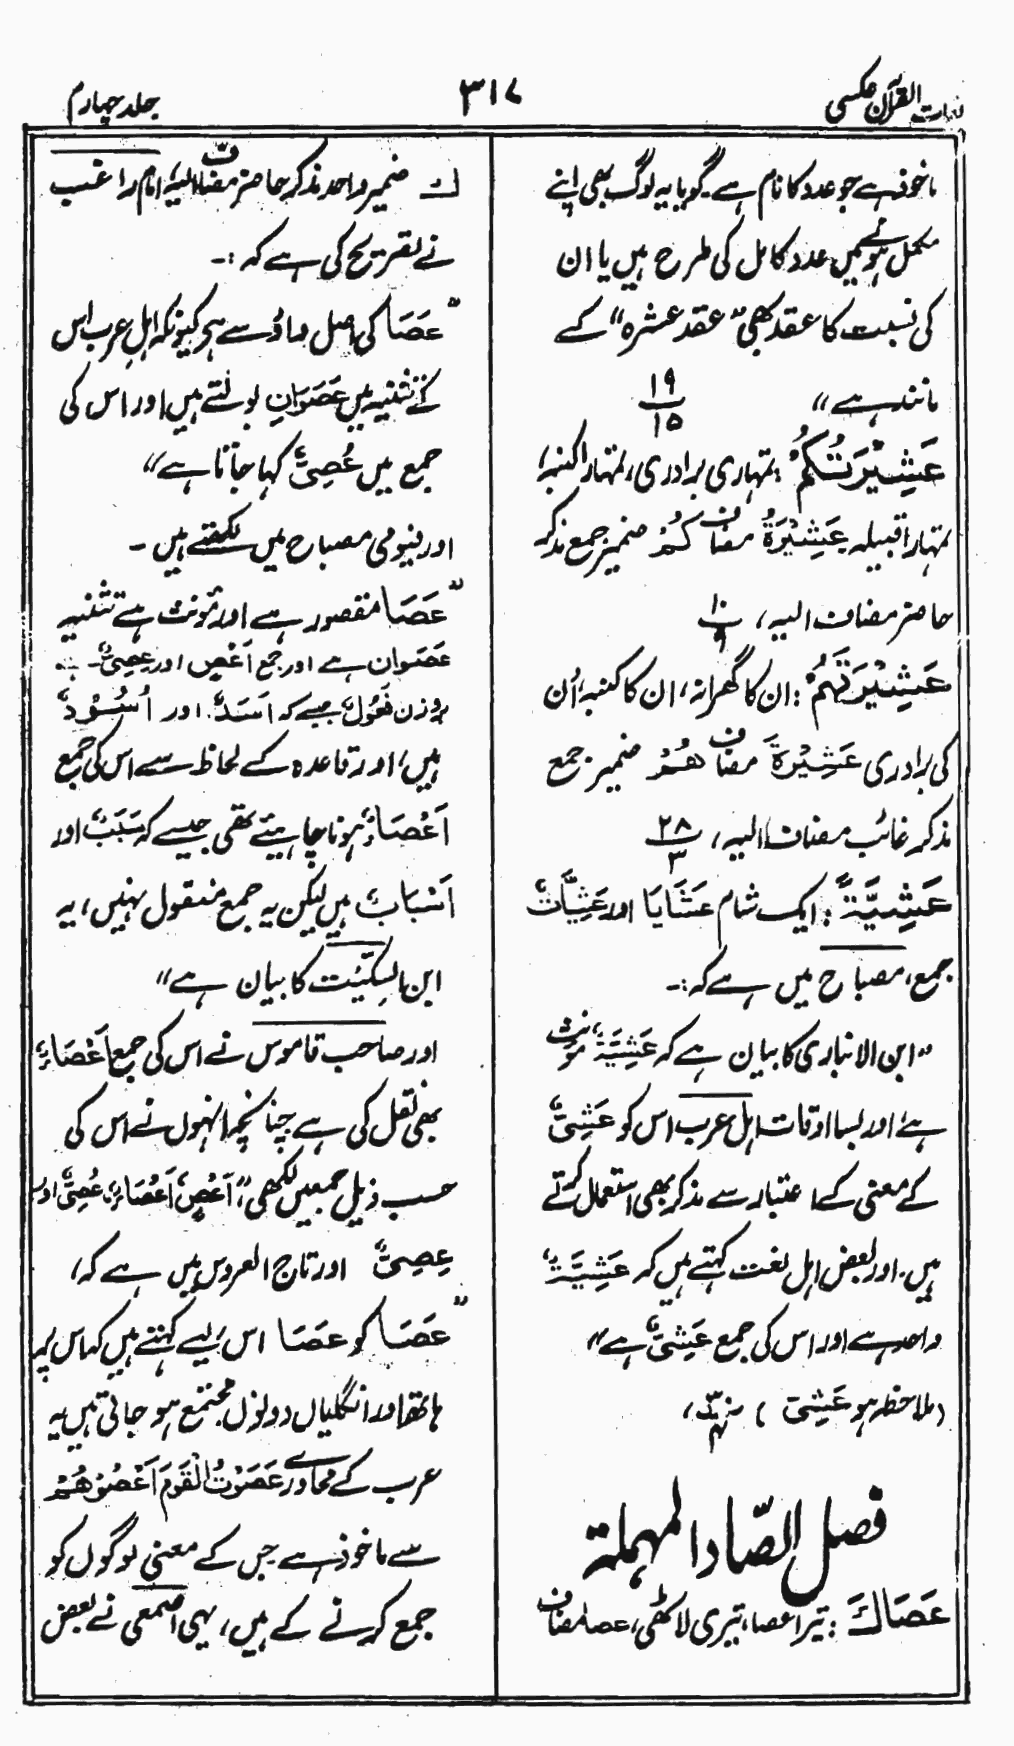 لغات القرآن عکسی
۳۱۷
جلد چہارم
ماخوذ ہے جو عدد کا نام ہے۔ گویا یہ لوگ بھی اپنے
مکمل ہونے میں عدد کامل کی طرح ہیں یا ان
کی نسبت کا عقد بھی ”عقد عشرہ“ کے
مانند ہے“ ۱۹/۱۵
عَشِیْرَتُکُمْ: تمہاری برادری، تمہارا کنبہ،
تمہارا قبیلہ عَشِیْرَۃُ مضاف کُمْ ضمیر جمع مذکر
حاضر مضاف الیہ، ۱۰/۹
عَشِیْرَتَہُمْ: ان کا گھرانہ، ان کا کنبہ، اُن
کی برادری عَشِیْرَۃَ مضاف ھُمْ ضمیر جمع
مذکر غائب مضاف الیہ، ۲۸/۳
عَشِیَّۃً: ایک شام عَشَایَا اور عَشِیَّاتٌ
جمع، مصباح میں ہے کہ:۔
”ابن الانباری کا بیان ہے کہ عَشِیَّۃٌ مؤنث
ہے اور بسا اوقات اہل عرب اس کو عَشِیٌّ
کے معنی کے اعتبار سے مذکر بھی استعمال کرتے
ہیں۔ اور بعض اہل لغت کہتے ہیں کہ عَشِیَّۃٌ
واحد ہے اور اس کی جمع عَشِیٌّ ہے“
(ملاحظہ ہو عَشِیّ)
فصل الصّاد المہملۃ
عَصَاکَ: تیرا عصا، تیری لاٹھی، عصا مضاف
ک ضمیر واحد مذکر حاضر مضاف الیہ، امام راغب
نے تصریح کی ہے کہ:۔
”عَصَا کی اصل واؤ سے ہے کیونکہ اہل عرب اس
کے تثنیہ میں عَصَوَانِ بولتے ہیں اور اس کی
جمع میں عُصِیٌّ کہا جاتا ہے“
اور فیومی مصباح میں لکھتے ہیں۔
”عَصَا مقصور ہے اور مؤنث ہے تثنیہ
عَصَوان ہے اور جمع اَعْصٍ اور عِصِیٌّ۔
بروزن فُعُولٌ جیسے کہ اَسَدٌ اور اُسُوْدٌ
ہیں، اور قاعدہ کے لحاظ سے اس کی جمع
اَعْصَاءٌ ہونا چاہیئے تھی جیسے کہ سَبَبٌ اور
اَسْبَابٌ ہیں لیکن یہ جمع منقول نہیں، یہ
ابن السِکّیْت کا بیان ہے“
اور صاحب قاموس نے اس کی جمع اَعْصَاءٌ
بھی نقل کی ہے چنانچہ انہوں نے اس کی
حسب ذیل جمعیں لکھی ہیں، اَعْصٍ، اَعْصَاءٌ، عُصِیٌّ اور
عِصِیٌّ اور تاج العروس میں ہے کہ،
”عَصَا کو عَصَا اس لیے کہتے ہیں کہ اس پر
ہاتھ اور انگلیاں دونوں مجتمع ہو جاتی ہیں یہ
عرب کے محاورے عَصَوْتُ الْقَوْمَ اَعْصُوْھُمْ
سے ماخوذ ہے جس کے معنی لوگوں کو
جمع کرنے کے ہیں، یہی اصمعی نے بعض